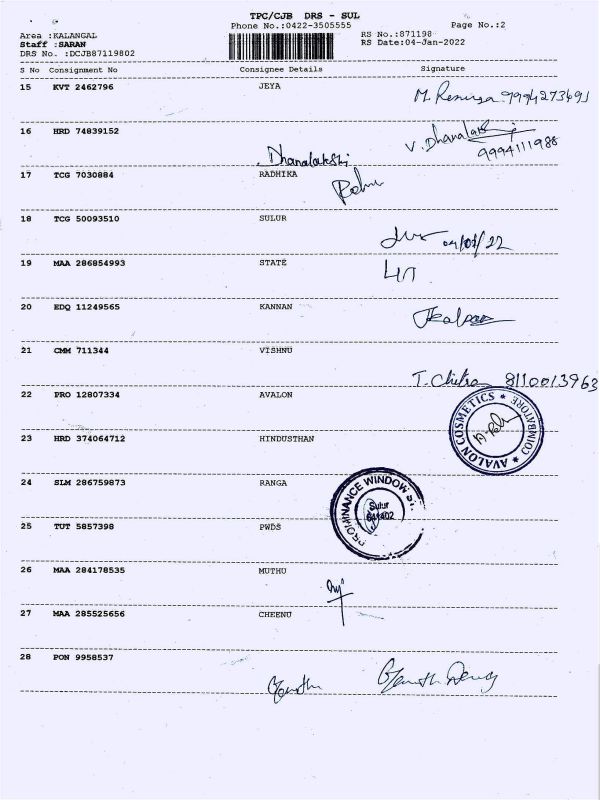 TPC/CJB DRS - SUL
Phone No.:0422-3505555 Page No.:2
Area :KALANGAL RS No.:871198
Staff :SARAN RS Date:04-Jan-2022
DRS No. :DCJB87119802
S No Consignment No Consignee Details Signature
15 KVT 2462796 JEYA
M. 9994273691
16 HRD 74839152
Dhanalakshi V. Dhanalakshmi
9994111988
17 TCG 7030884 RADHIKA
18 TCG 50093510 SULUR
04/01/22
19 MAA 286854993 STATE
20 EDQ 11249565 KANNAN
21 CMM 711344 VISHNU
T. Chitra 8110013963
22 PRO 12807334 AVALON
AVALON COSMETICS * COIMBATORE *
23 HRD 374064712 HINDUSTHAN
24 SLM 286759873 RANGA
PROMINANCE WINDOW
Sulur
641402
25 TUT 5857398 PWDS
26 MAA 284178535 MUTHU
27 MAA 285525656 CHEENU
28 PON 9958537